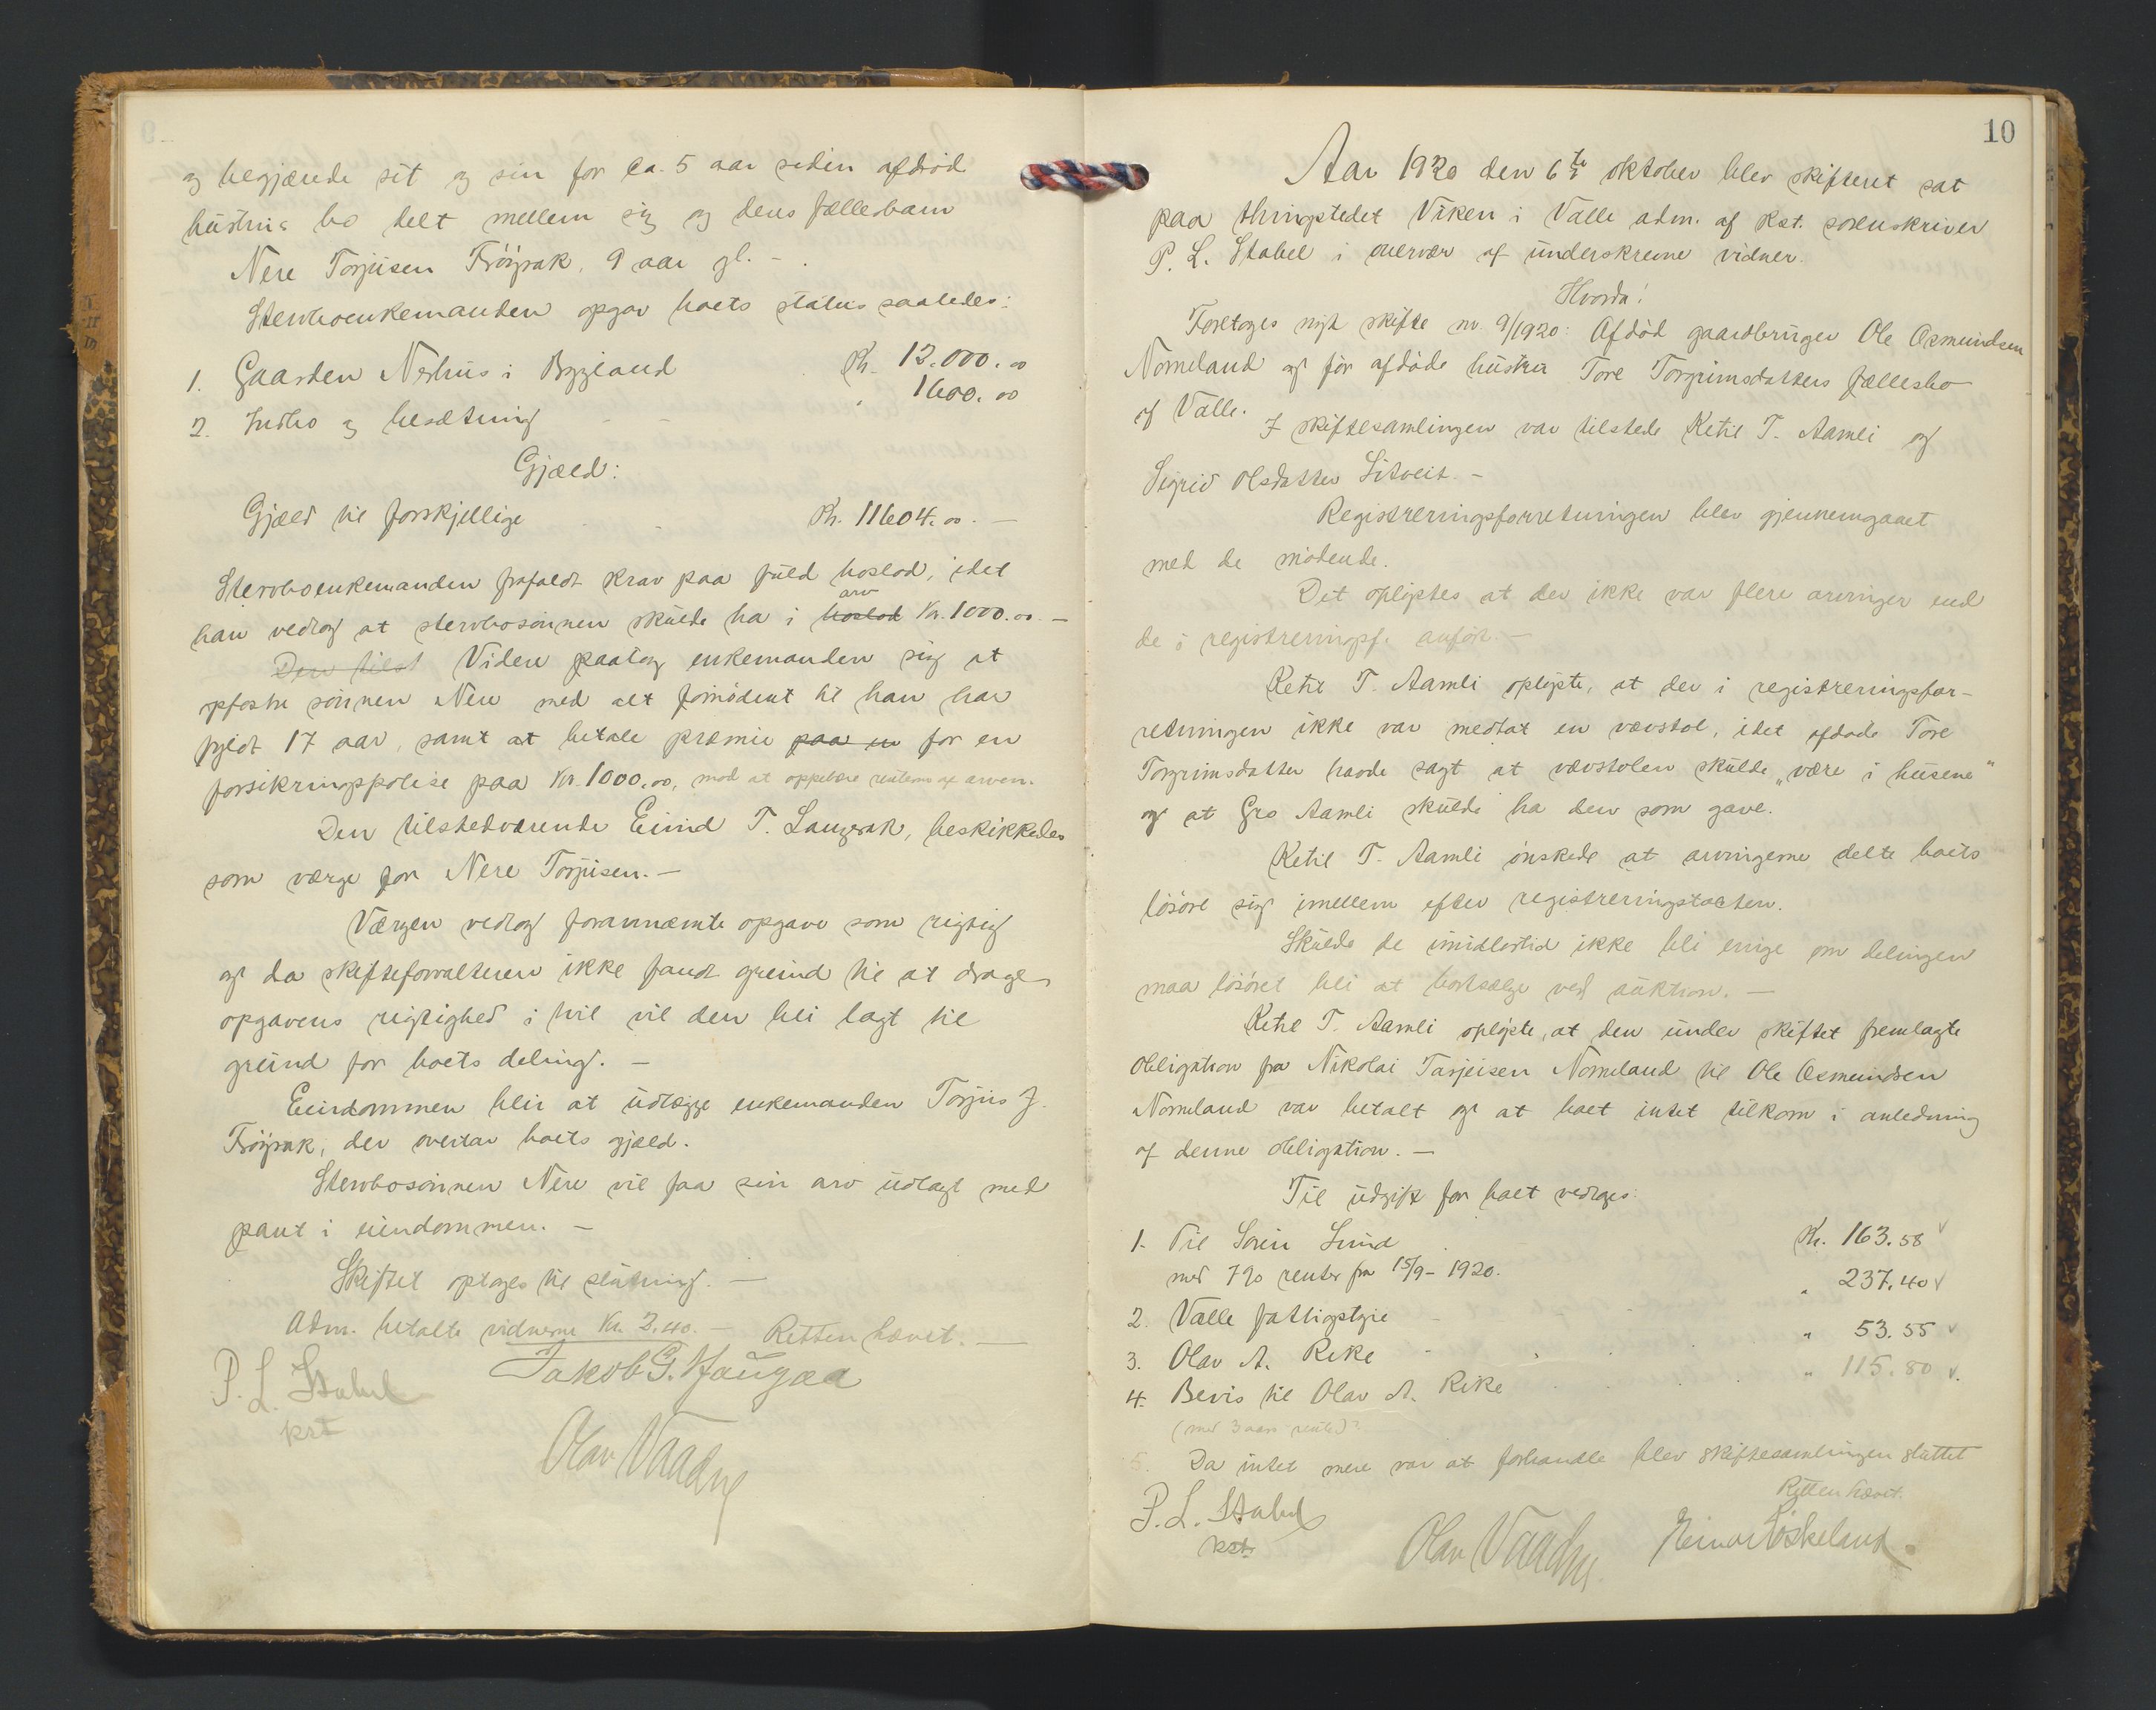 og begjærede sit og sin for ca. 5 aar siden afdöd
hustrus bo delt mellem sig og deres fællesbarn
Nere Torjusen Fröisnak, 9 aar gl. -
Stervboenkemanden opgav boets status saaledes:
1. Gaarden Neshus i Bygland Kr. 12.000.00
2. Indbo og besætning - - " 1600.00
Gjæld:
Gjæld til forskjellige - Kr. 11604.00. -
Stervboenkemanden frafaldt krav paa fuld boslod, idet
han vedtog at stervbosönnen skulde ha i boslod arv Kr. 1000.00. -
Den tilst Videre paatog enkemanden sig at
opfostre sönnen Nere med alt fornödent til han har
fyldt 17 aar, samt at betale præmie paa en for en
forsikringspolise paa Kr. 1000.00, mod at oppebære renterne af arven.
Den tilstedværende Eivind T. Langerak, beskikkedes
som værge for Nere Torjusen. -
Værgen vedtog forannævnte opgave som rigtig
og da skifteforvalteren ikke fandt grund til at drage
opgavens rigtighed i tvil vil den bli lagt til
grund for boets deling. -
Eiendommen blir at udlægge enkemanden Torjus J.
Fröisnak, der overtar boets gjæld.
Stervbosönnen Nere vil faa sin arv udlagt med
pant i eiendommen. -
Skiftet optages til slutning. -
Adm. betalte vidnerne Kr. 2.40. - Retten hævet. -
P. L. Stabel Jakob G. Haugaa
kst
Olav Vaadne
10
Aar 1920 den 6te oktober blev skifteret sat
paa thingstedet Viken i Valle adm. af kst. sorenskriver
P. L. Stabel i overvær af underskrevne vidner.
Hvorda!
Foretages nyt skifte nr. 9/1920: Afdöd gaardbruger Ole Osmundsen
Nomeland og för afdöde hustru Tore Torgrimsdatters fællesbo
af Valle.
I skiftesamlingen var tilstede Ketil T. Aamli og
Sigrid Olsdatter Litveit. -
Registreringsforretningen blev gjennemgaaet
med de mödende.
Det oplystes at der ikke var flere arvinger end
de i registreringsf. anfört. -
Ketil T. Aamli oplyste, at der i registreringsfor-
retningen ikke var medtat en vævstol, idet afdöde Tore
Torgrimsdatter havde sagt at vævstolen skulde "være i husene"
og at Gro Aamli skulde ha den som gave.
Ketil T. Aamli önskede at arvingerne delte boets
lösöre sig imellem efter registreringstaksten.
Skulde de imidlertid ikke bli enige om delingen
maa lösöret bli at bortsælge ved auktion. -
Ketil T. Aamli oplyste, at den under skiftet fremlagte
obligation fra Nikolai Tarjeisen Nomeland til Ole Osmundsen
Nomeland var betalt og at boet intet tilkom i anledning
af denne obligation. -
Til udgift for boet vedtoges:
1. Til Sören Lund Kr. 163.58 v
med 7% renter fra 15/9-1920.
" 237.40 v
2. Valle fattigstyre -
" 53.55 v
3. Olav A. Rike -
" 115.80 v.
4. Bevis til Olav A. Rike
(med 3 aars rente)?
5. Da intet mere var at forhandle blev skiftesamlingen sluttet
Retten hævet.
P. L. Stabel
kst
Olav Vaadne